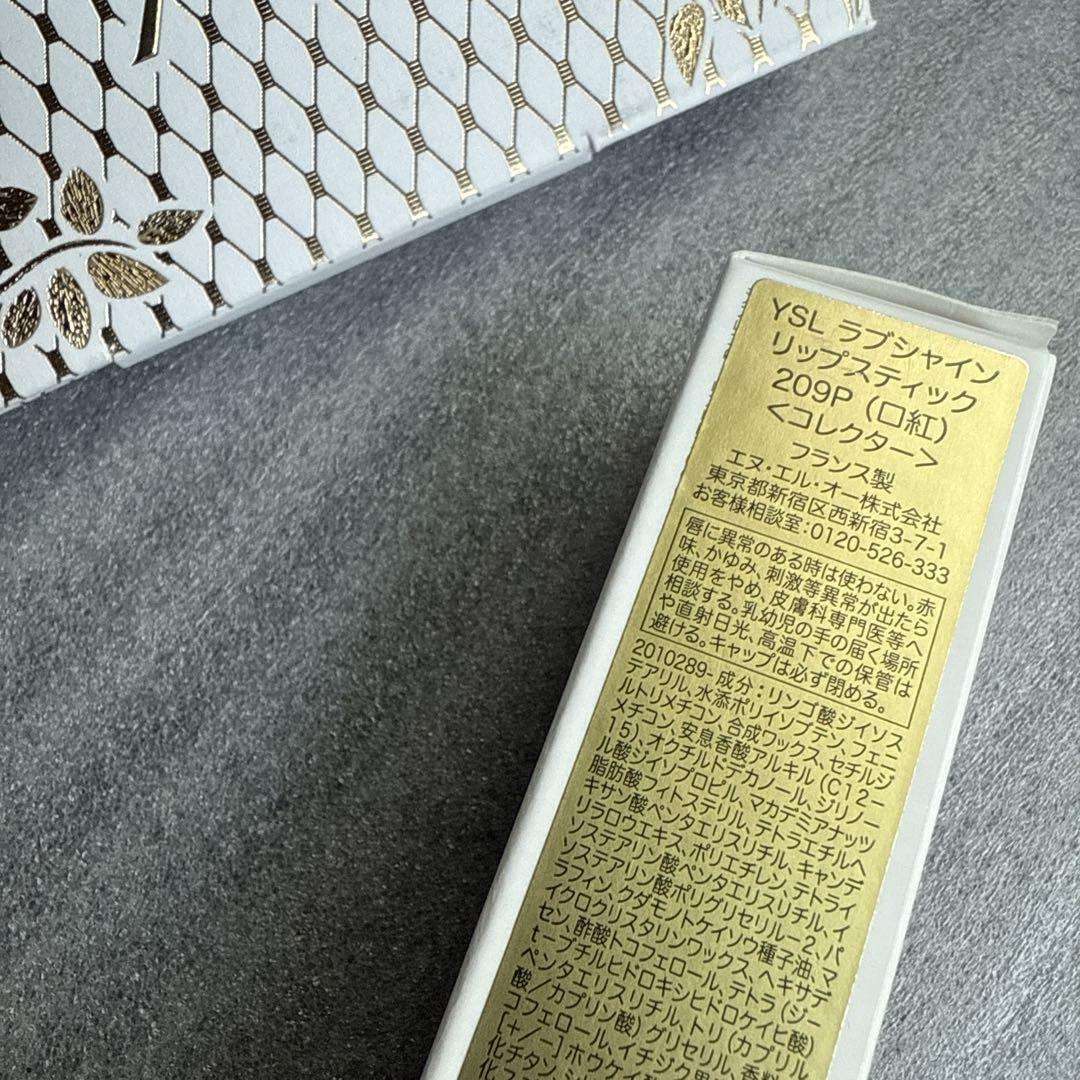 YSL ラブシャイン
リップスティック
209P（口紅）
＜コレクター＞
フランス製
エヌ・エル・オー株式会社
東京都新宿区西新宿3-7-1
お客様相談室:0120-526-333
唇に異常のある時は使わない。赤
味、かゆみ、刺激等異常が出たら
使用をやめ、皮膚科専門医等へ
相談する。乳幼児の手の届く場所
や直射日光、高温下での保管は
避ける。キャップは必ず閉める。
2010289- 成分：リンゴ酸ジイソス
テアリル、水添ポリイソブテン、フェニ
ルトリメチコン、合成ワックス、セチルジ
メチコン、安息香酸アルキル（C12-
15）、オクチルドデカノール、ジリノー
ル酸ジイソプロピル、マカデミアナッツ
脂肪酸フィトステリル、テトラエチルヘ
キサン酸ペンタエリスリチル、キャンデ
リラロウエキス、ポリエチレン、テトライ
ソステアリン酸ペンタエリスリチル、イ
ソステアリン酸ポリグリセリル-2、パ
ラフィン、クダモノトケイソウ種子油、マ
イクロクリスタリンワックス、ヘキサデ
セン、酢酸トコフェロール、テトラ（ジー
t-ブチルヒドロキシヒドロケイヒ酸）
ペンタエリスリチル、トリ（カプリル
酸／カプリン酸）グリセリル、香料
コフェロール、イチジク果
[+/-] ホウケイ
化チタン